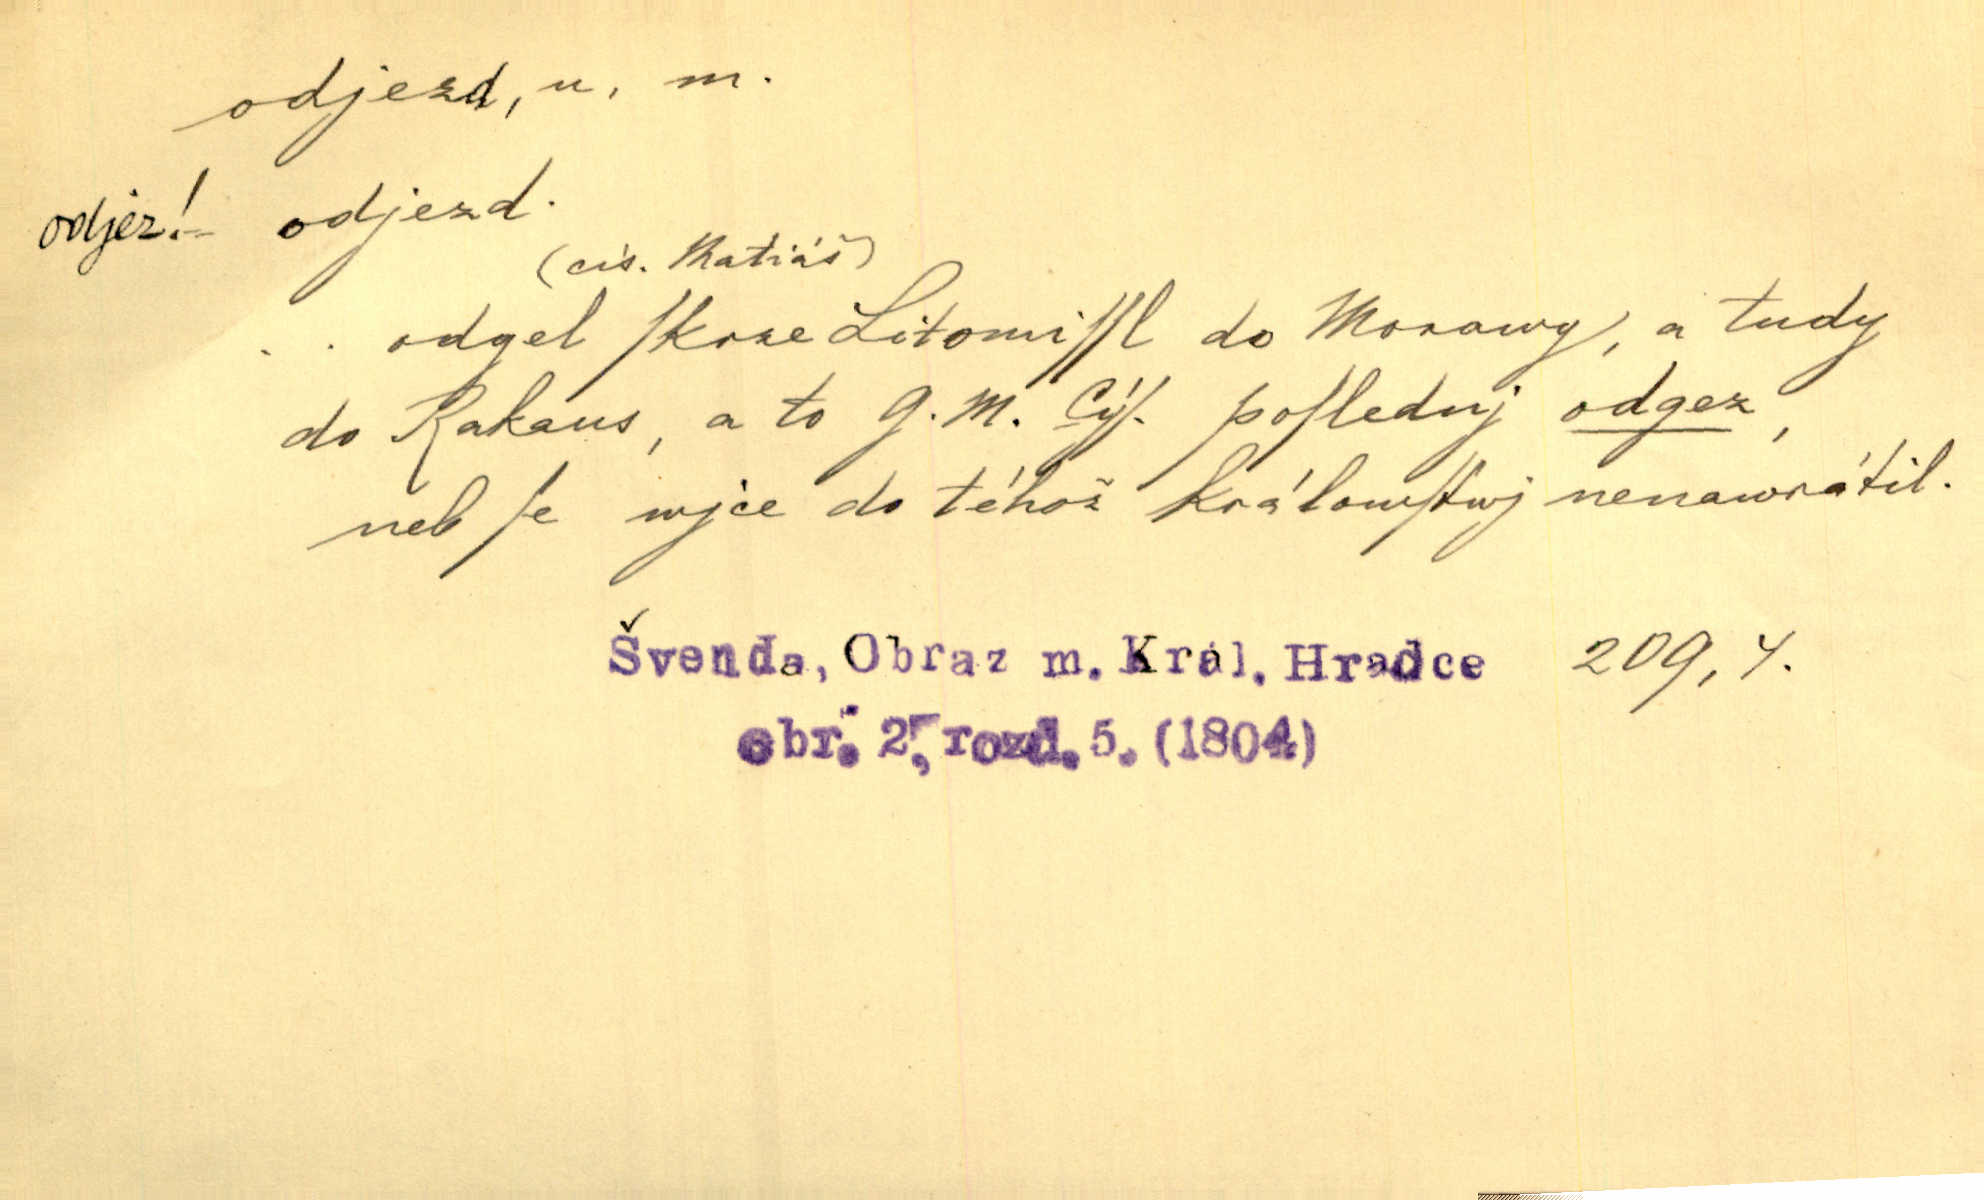 odjezd, u, m.
odjez! odjezd.
(cís. Matiáš)
. . odgel ſkrze Litomiſſl do Morawy, a tudy
do Rakaus, a to G. M. Cýſ. poſlednj odgez,
neb ſe wjce do téhož králowſtwj nenawrátil.
Švenda, Obraz m. Král. Hradce 209, 4.
obr. 2, rozd. 5. (1804)